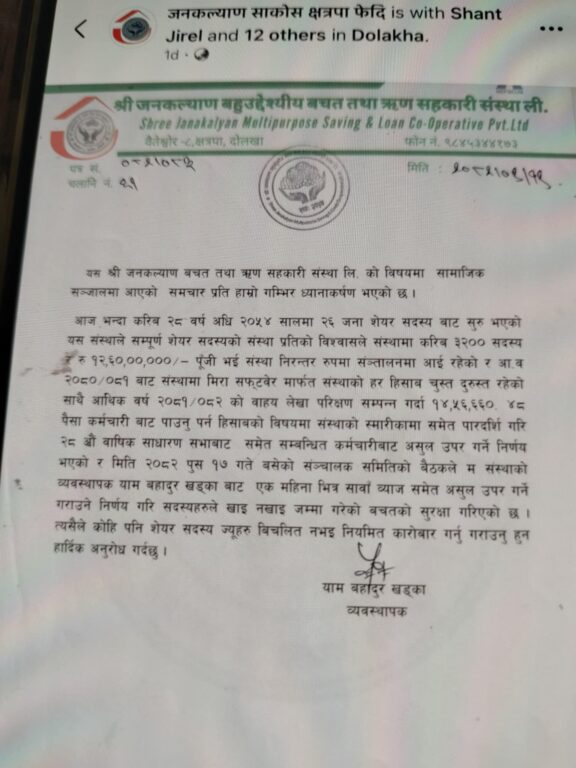 जनकल्याण साकोस क्षत्रपा फेदि is with Shant
Jirel and 12 others in Dolakha.
1d
श्री जनकल्याण बहुउद्देश्यीय बचत तथा ऋण सहकारी संस्था ली.
Shree Janakalyan Multipurpose Saving & Loan Co-Operative Pvt.Ltd
वैतेश्वोर -८,क्षत्रपा, दोलखा
फोन नं. ९८४५३४४१७३
पत्र सं. ०८२/०८३
मिति :
चलानि नं. २१
यस श्री जनकल्याण बचत तथा ऋण सहकारी संस्था लि. को विषयमा सामाजिक
सञ्जालमा आएको समचार प्रति हाम्रो गम्भिर ध्यानाकर्षण भएको छ ।
आज भन्दा करिब २८ वर्ष अधि २०५४ सालमा २६ जना शेयर सदस्य बाट सुरु भएको
यस संस्थाले सम्पूर्ण शेयर सदस्यको संस्था प्रतिको विश्वासले संस्थामा करिब ३२०० सदस्य
र रु १२,६०,००,०००/- पूंजी भई संस्था निरन्तर रुपमा सञ्तालनमा आई रहेको र आ.व
२०८०/०८१ बाट संस्थामा मिरा सफ्टवेर मार्फत संस्थाको हर हिसाब चुस्त दुरुस्त रहेको
साथै आथिक वर्ष २०८१/०८२ को वाहय लेखा परिक्षण सम्पन्न गर्दा १४,५६,६६०. ४८
पैसा कर्मचारी बाट पाउनु पर्न हिसाबको विषयमा संस्थाको स्मारीकामा समेत पारदर्शि गरि
२८ औ वाषिक साधारण सभाबाट समेत सम्बन्धित कर्मचारीबाट असुल उपर गर्ने निर्णय
भएको र मिति २०८२ पुस १७ गते बसेको संञ्चालक समितिको बैठकले म संस्थाको
व्यवस्थापक याम बहादुर खड्का बाट एक महिना भित्र सावाँ व्याज समेत असुल उपर गर्ने
गराउने निर्णय गरि सदस्यहरुले खाइ नखाइ जम्मा गरेको बचतको सुरक्षा गरिएको छ ।
त्यसैले कोहि पनि शेयर सदस्य ज्यूहरु बिचलित नभइ नियमित कारोबार गर्नु गराउनु हुन
हार्दिक अनुरोध गर्दछु ।
याम बहादुर खड्का
व्यवस्थापक